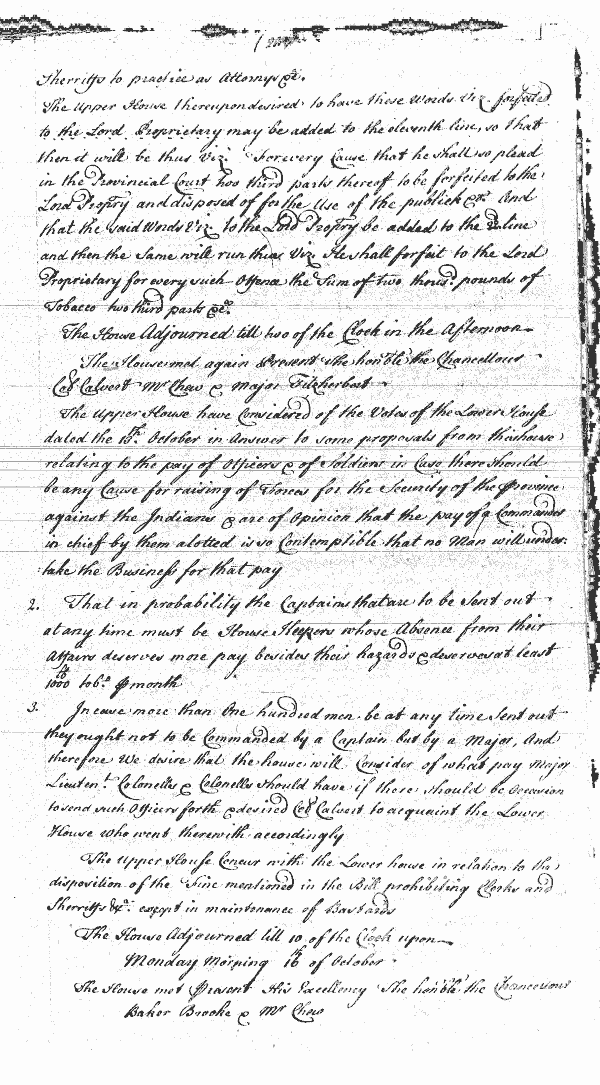 Sherriffs to practice as Attorneys &c.
The Upper House thereupon desired to have these Words Viz. forfeited
to the Lord Proprietary may be added to the eleventh line, so that
then it will be thus Viz. For every Cause that he shall so plead
in the Provincial Court two third parts thereof to be forfeited to the
Lord Propry and disposed of for the Use of the publick &c. And
that the said Words Viz. to the Lord Propry be added to the line
and then the Same will run thus Viz. He shall forfeit to the Lord
Proprietary for every such Offence the Sum of two thous.d pounds of
Tobacco two third parts &c.
The House Adjourned till two of the Clock in the Afternoon
The House met again Present the hon'ble the Chancellour
Col Calvert Mr Chew & Major Fitzherbert
The Upper House have Considered of the Votes of the Lower House
dated the 13th. October in Answer to some proposals from this house
relating to the pay of Officers & of Soldiers in Case there should
be any Cause for raising of Forces for the Security of the Province
against the Indians & are of Opinion that the pay of a Commander
in chief by them alotted is so Contemptible that no Man will under:
take the Business for that pay
2. That in probability the Captains that are to be Sent out
at any time must be House Keepers whose Absence from their
Affairs deserves more pay besides their hazards & deserves at least
1000 lb tob.o p month
3. In case more than One hundred men be at any time Sent out
they ought not to be Commanded by a Captain but by a Major, And
therefore We desire that the house will Consider of what pay Major
Lieuten.t Colonells & Colonells should have if there should be Occasion
to send such Officers forth & desired Col Calvert to acquaint the Lower
House who went therewith accordingly
The Upper House Concur with the Lower house in relation to the
disposition of the Fine mentioned in the Bill prohibiting Clerks and
Sherriffs &c. except in maintenance of Bastards
The House Adjourned till 10 of the Clock upon
Monday Morning 16th of October
The House met Present His Excellency The hon'ble the Chancellour
Baker Brooke & Mr Chew